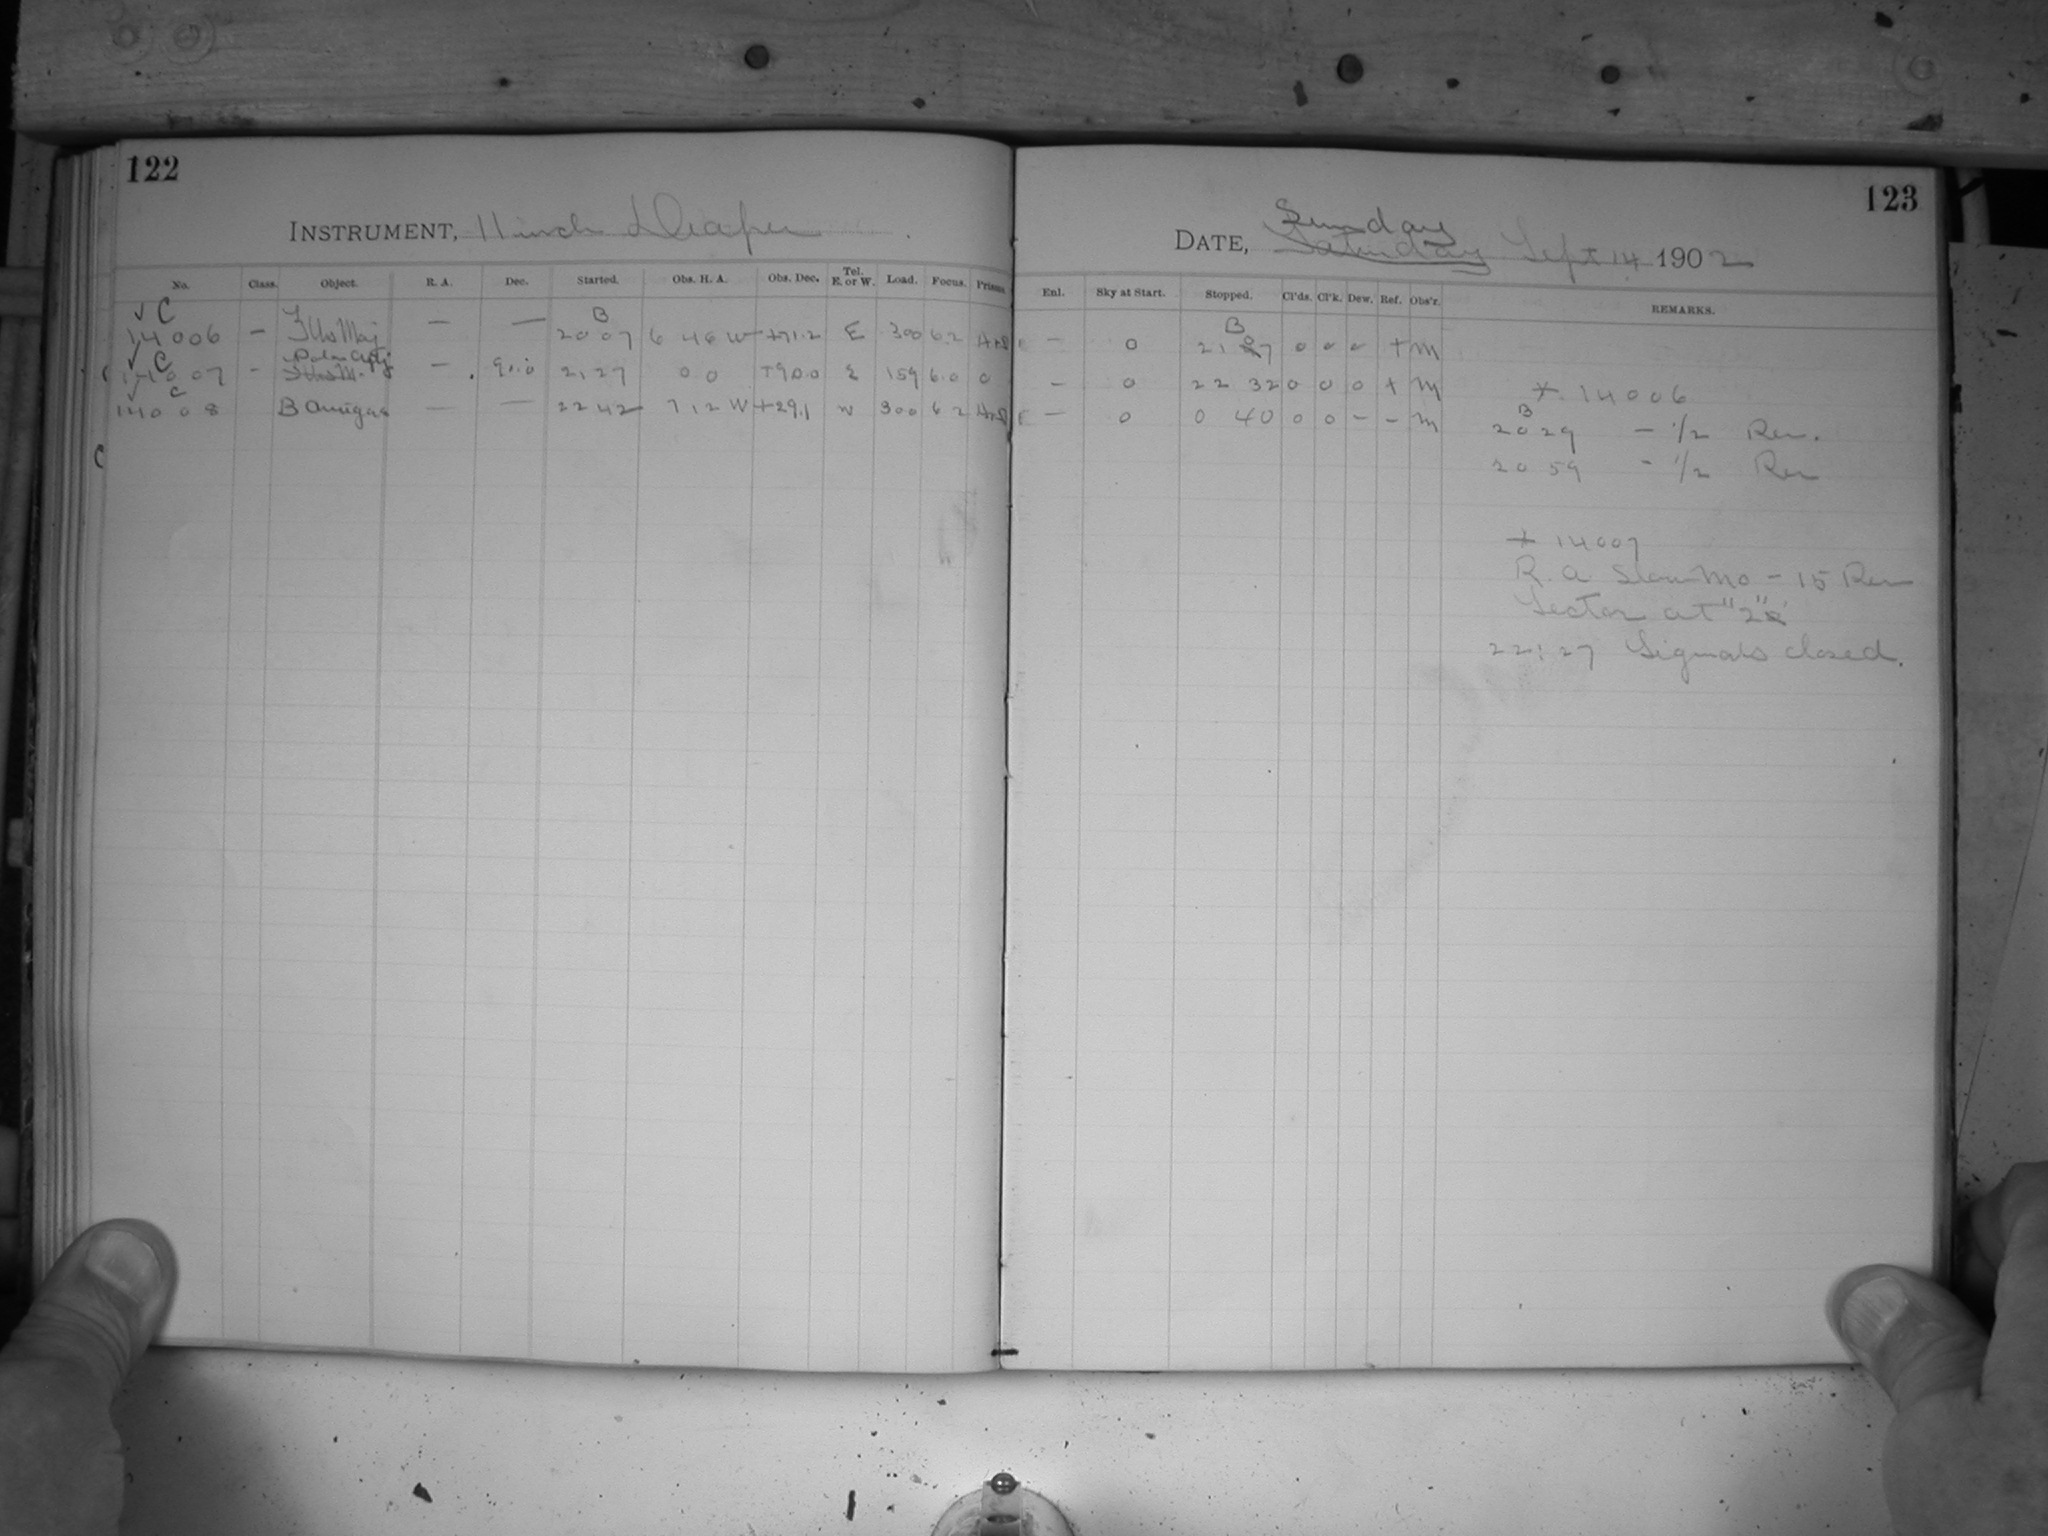 122
INSTRUMENT, 11 inch Draper
No. Class. Object. R. A. Dec. Started. Obs. H. A. Obs. Dec. Tel. E. or W. Load. Focus. Prisms.
✓ C B
14006 – Urs Maj — — 20 07 6 46 W +71.2 E 300 6.2
✓ C
14007 – — 90.0 21 27 0 0 +90.0 E 159 6.0 0
✓ C
14008 B Aurigae — — 22 42 7 12 W +29.1 W 300 6 2
C
123
Sunday
DATE, Saturday Sept 14 1902
Enl. Sky at Start. Stopped. Cl'ds. Cl'k. Dew. Ref. Obs'r. REMARKS.
B
– 0 21 7 0 0 0 + M
– 0 22 32 0 0 0 + M
– 0 0 40 0 0 – – M
* 14006
B
20 29 – 1/2 Rev.
20 59 – 1/2 Rev
* 14007
R. A Slow Mo – 15 Rev
Sector at "2"
22:27 Signals closed.